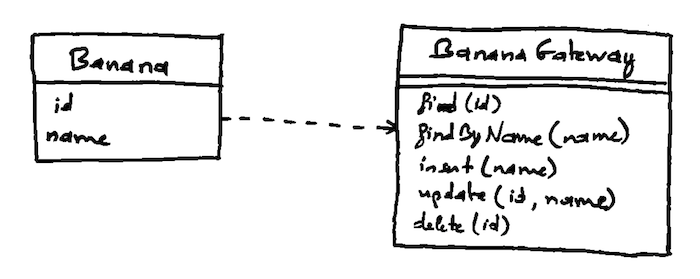 Banana
id
name
Banana Gateway
find (id)
findByName (name)
insert (name)
update (id, name)
delete (id)